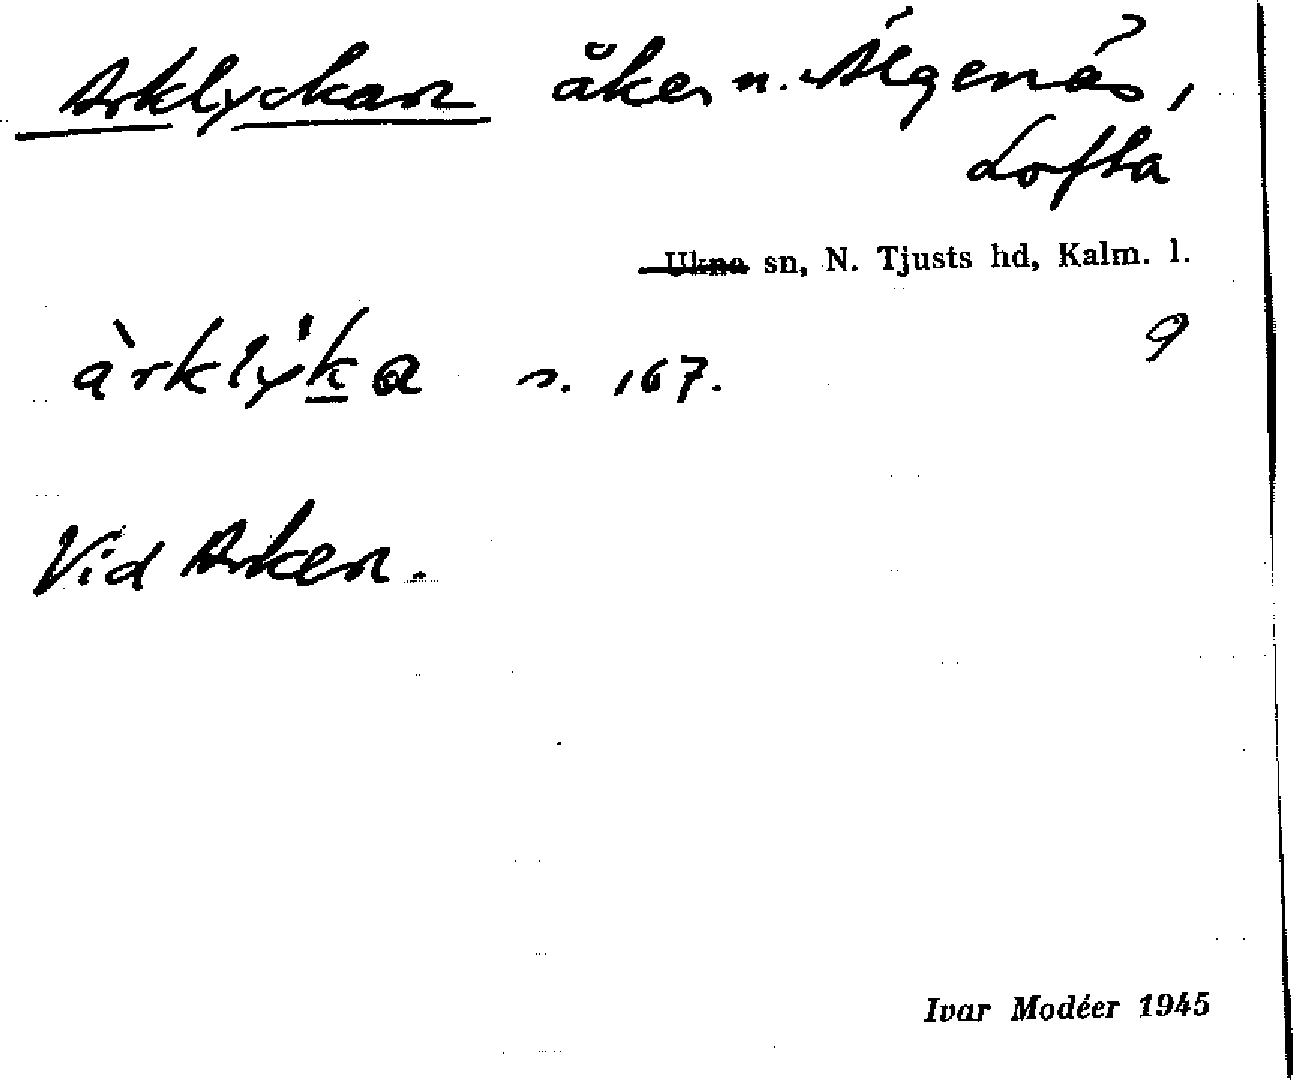 Arklyckan åker n. Älgenäs,
Lofta
Ukna sn, N. Tjusts hd, Kalm. l.
9
àrklý̀ka s. 167.
Vid Arken.
Ivar Modéer 1945